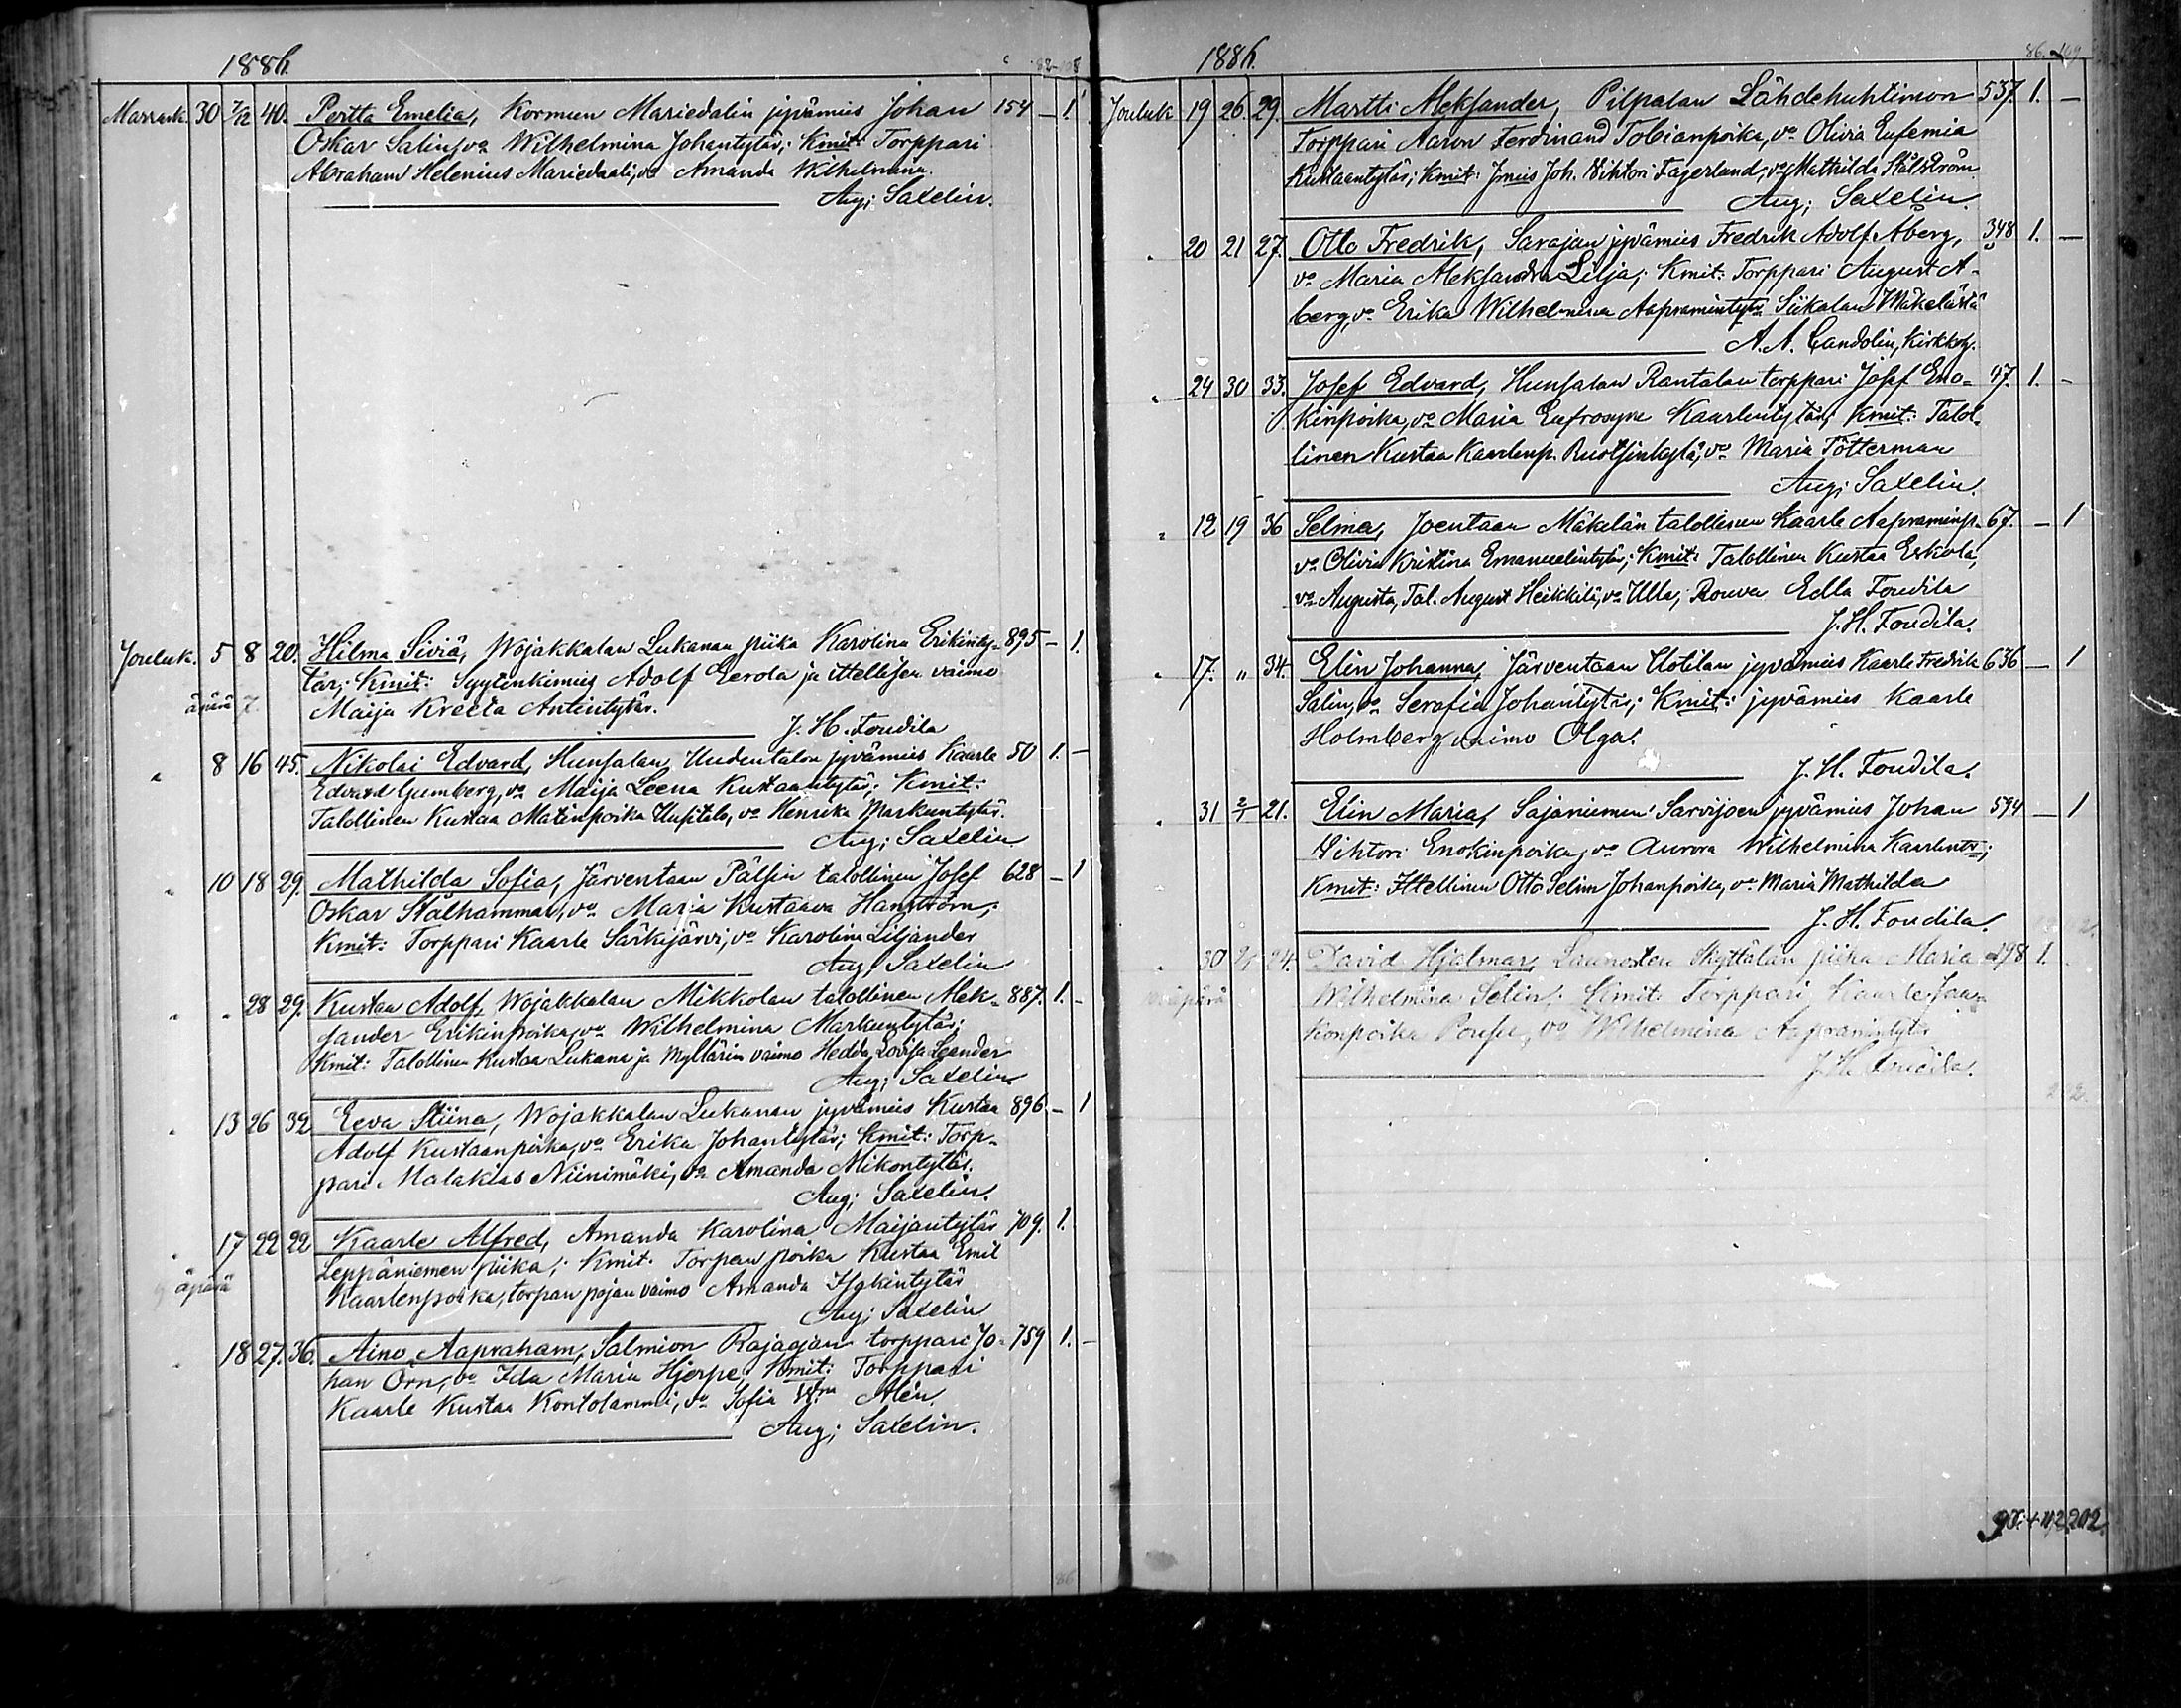 1886.
Marrask. 30 7/12 40. Pertta Emelia, Kormun Mariedalin jyvämies Johan 154 — 1
Oskar Salin, vo Wilhelmina Johantytär; Kmit: Torppari
Abraham Helenius Mariedaali, vo Amanda Wilhelmina.
Aug; Saxelin.
Jouluk. 5 8 20. Hilma Siviä, Wojakkalan Lukanan piika Karolina Erikinty- 895 — 1.
tär; Kmit: Syytinkimies Adolf Eerola ja ittellisen vaimo
äpärä 7. Maija Kreeta Antintytär.
J. H. Fondila
" 8 16 45. Nikolai Edvard, Hunsalan Uudentalon jyvämies Kaarle 50 1. —
Edvard Gumberg, vo Maija Leena Kustaantytär; Kmit:
Talollinen Kustaa Matinpoika Uusitalo, vo Henrika Markuntytär.
Aug; Saxelin
" 10 18 29. Mathilda Sofia, Järventaan Pälsin talollinen Josef 628 — 1
Oskar Stålhammar, vo Maria Kustaava Hanström;
Kmit: Torppari Kaarle Särkijärvi, vo Karolina Liljander
Aug; Saxelin
" " 28 29. Kustaa Adolf, Wojakkalan Mikkolan talollinen Alek- 887. 1. —
sander Erikinpoika, vo Wilhelmina Markuntytär;
Kmit: Talollinen Kustaa Lukana ja Myllärin vaimo Hedda Lovisa Leander
Aug; Saxelin
" 13 26 32 Eeva Stiina, Wojakkalan Lukanan jyvämies Kustaa 896 — 1
Adolf Kustaanpoika, vo Erika Johantytär; Kmit: Torp-
pari Malakias Niinimäki, vo Amanda Mikontytär.
Aug; Saxelin.
" 17 22 22 Kaarle Alfred, Amanda Karolina Maijantytär 709. 1.
äpärä Leppäniemen piika; Kmit. Torpan poika Kustaa Emil
Kaarlenpoika, torpan pojan vaimo Amanda
Aug; Saxelin
" 18 27. 36. Aino Aapraham, Salmion Rajaojan torppari Jo- 759 1. —
han Örn, vo Ida Maria Hjerpe; Kmit: Torppari
Kaarle Kustaa Kontolammi, vo Sofia Alén.
Aug; Saxelin.
1886.
Jouluk 19 26. 29. Martti Aleksander, Pilpalan Lähdehuhtimon 537. 1. —
Torppari Aaron Ferdinand Tobianpoika, vo Olivia Eufemia
Kustaantytär; Kmit: Jmies Joh. Vihtori Fagerlund, vo Mathilda Stålström
Aug; Saxelin.
" 20 21 27. Otto Fredrik, Sarajan jyvämies Fredrik Adolf Åberg, 348 1. —
vo Maria Aleksandra Lilja; Kmit: Torppari August A-
berg, vo Erika Wilhelmina Aapramintytär Siikalan Mäkelästä
A. A. Candolin, Kirkkoh.
" 24 30 33. Josef Edvard, Hunsalan Rantalan torppari Josef Eno- 47. 1. —
kinpoika, vo Maria Eufrosyne Kaarlentytär; Kmit: Talol-
linen Kustaa Kaarlenp. Ruotsinkylä, vo Maria Tötterman
Aug; Saxelin.
" 12 19 36 Selma, Joentaan Mäkelän talollinen Kaarle Aapraminp. 67. — 1
vo Olivia Kristina Emanuelintytär; Kmit: Talollinen Kustaa Erkola,
vo Augusta, Tal. August Heikkilä, vo Ulla, Rouva Edla Fondila
J. H. Fondila.
" 17. " 34. Elin Johanna, Järventaan Uotilan jyvämies Kaarle Fredrik 636 — 1
Salin, vo Serafia Johantytär; Kmit: jyvämies Kaarle
Holmberg vaimo Olga.
J. H. Fondila.
" 31 2/1 21. Elin Maria, Sajaniemen Sarvijoen jyvämies Johan 594 — 1
Vihtori Enokinpoika, vo Aurora Wilhelmina Kaarlentr;
Kmit: Ittellinen Otto Selim Johanpoika, vo Maria Mathilda
J. H. Fondila.
" 30 2/1 24. David Hjalmar, Launosten Skyttälän piika Maria 298 1.
äpärä Wilhelmina Selin. Kmit: Torppari Kaarle Jaa-
konpoika, vo Wilhelmina Aapramintytär
J. H. Fondila.
202.